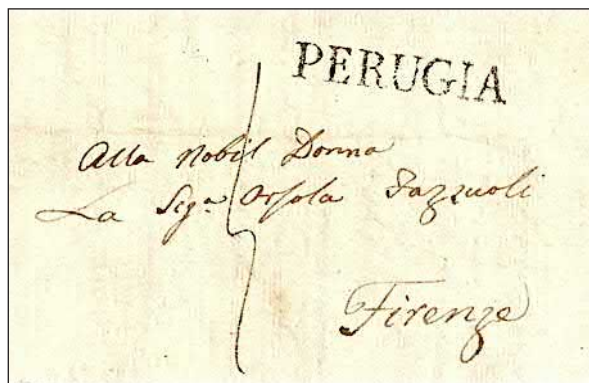 PERUGIA
Alla Nobil Donna
La Sigª Orsola Fazzuoli
Firenze